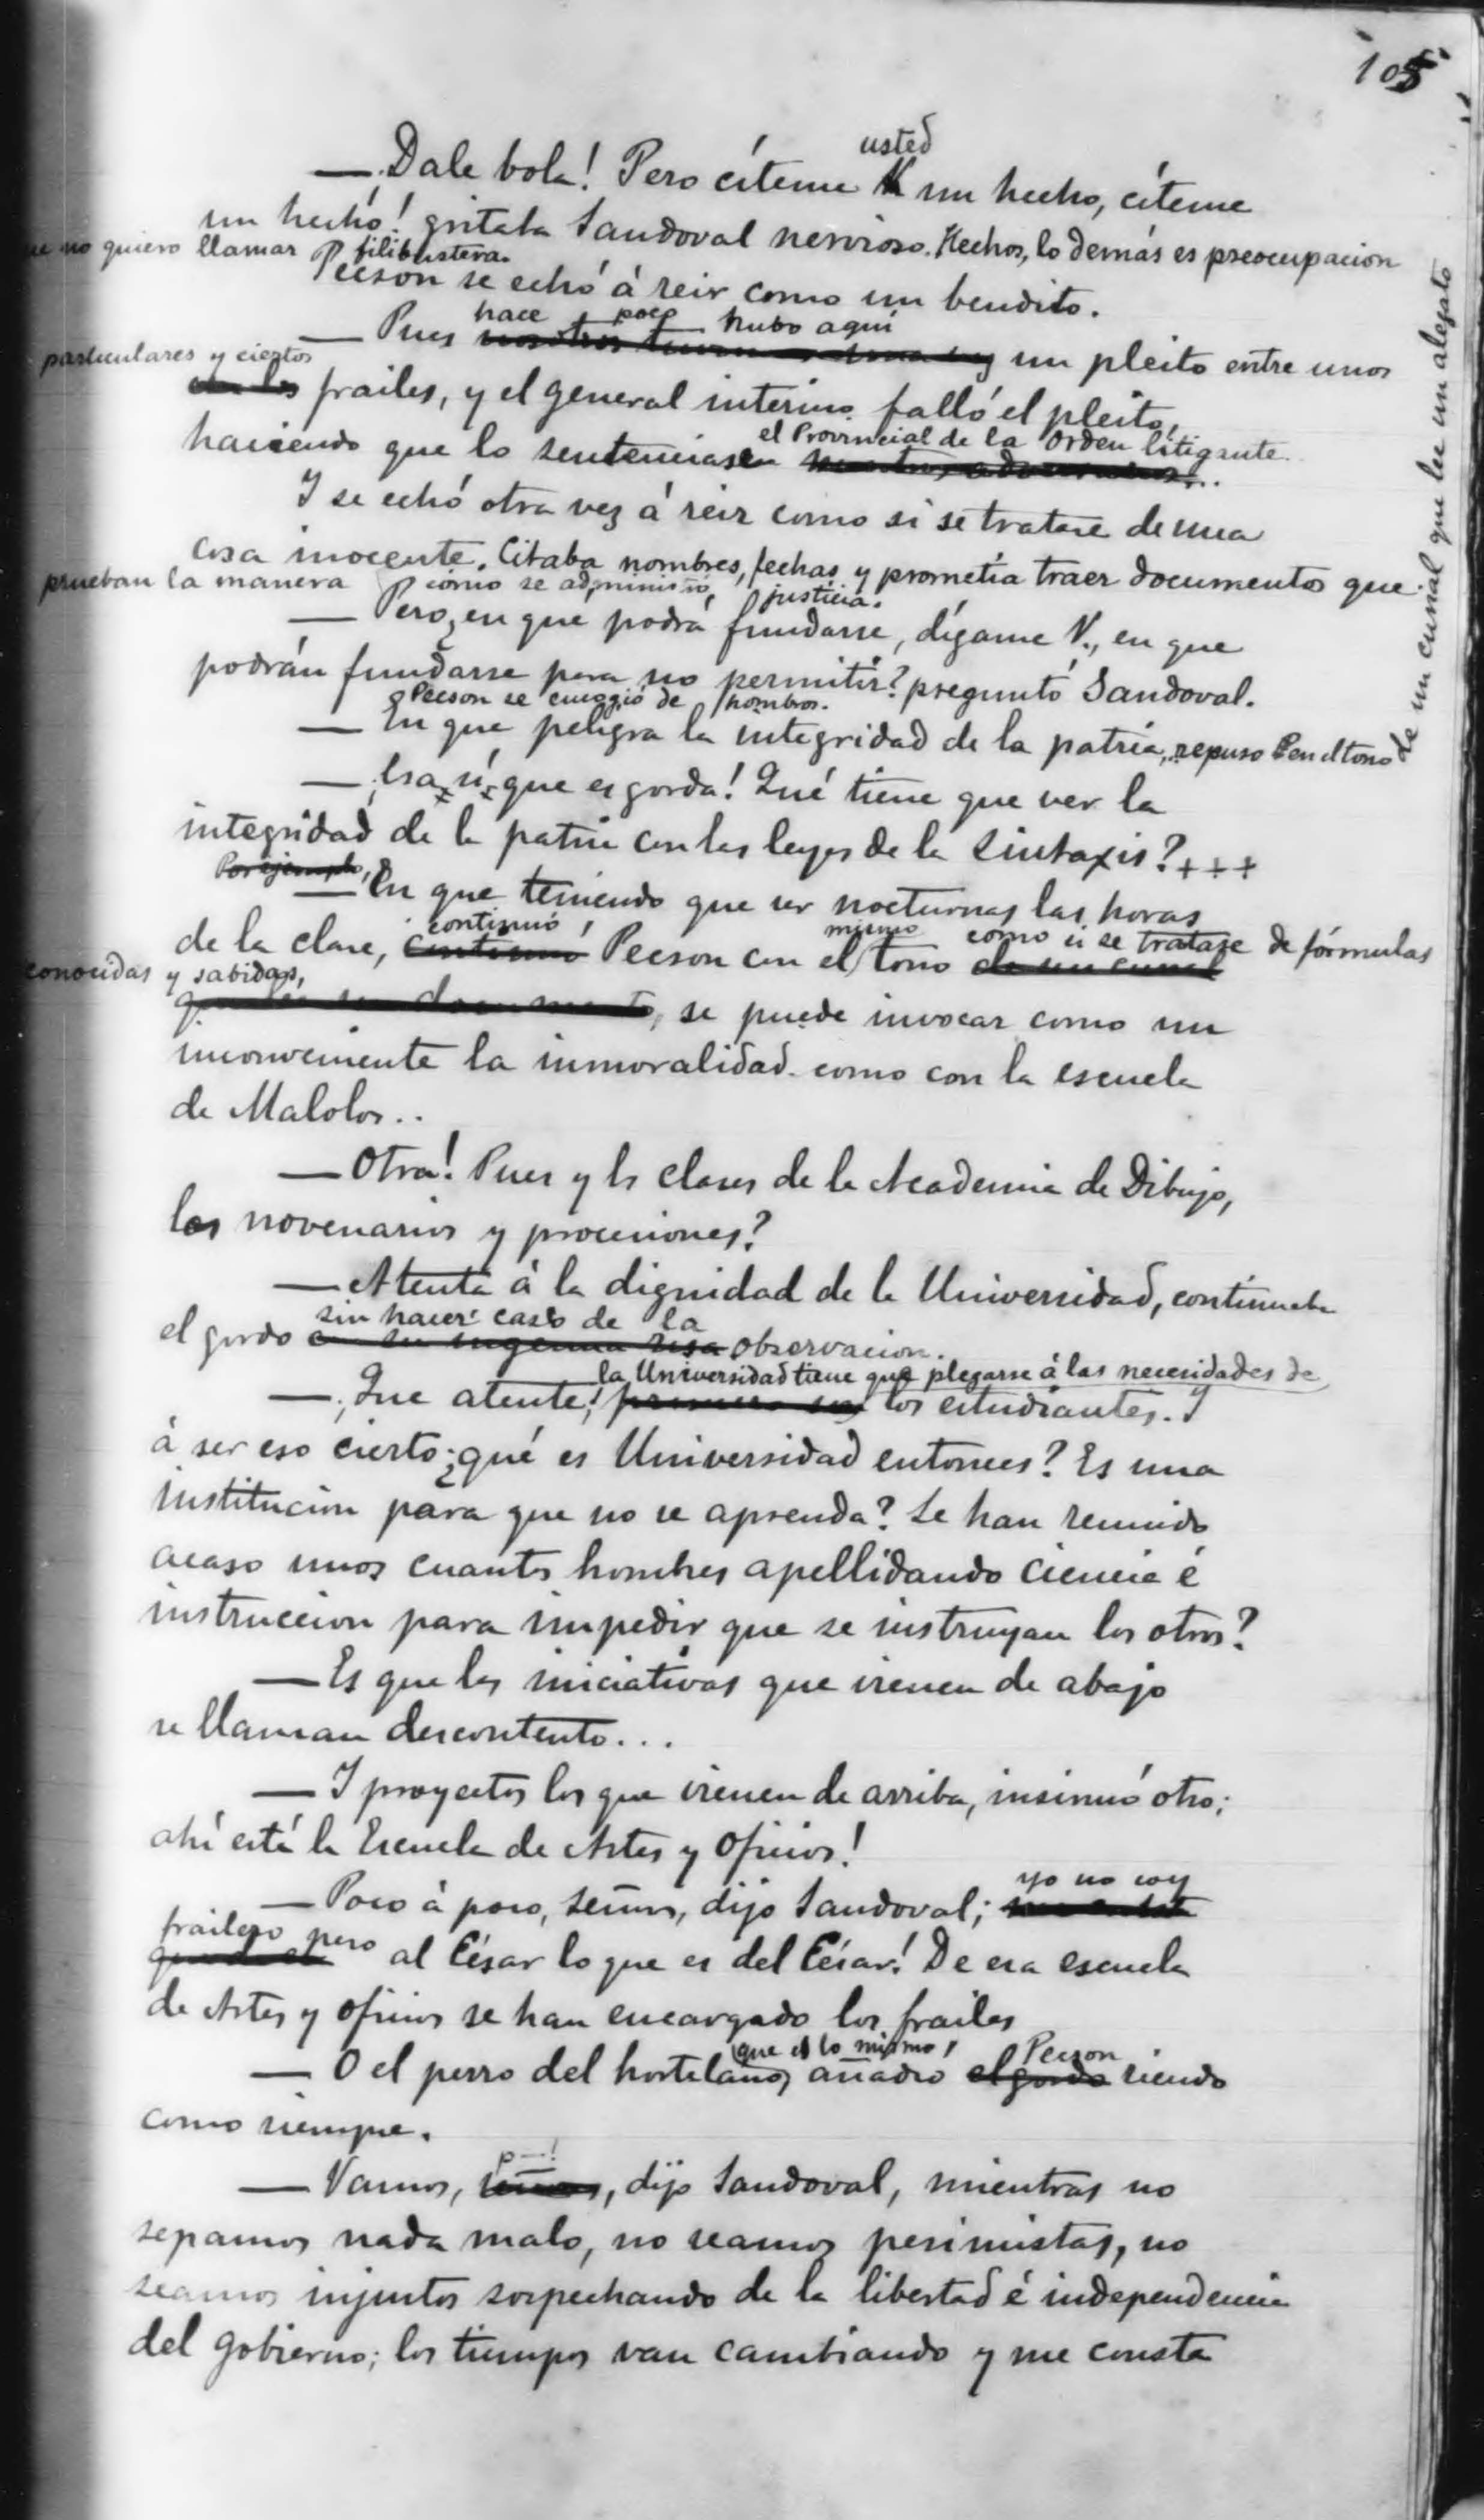 105
usted
— Dale bola! Pero cíteme V un hecho, cíteme
un hecho! gritaba Sandoval nervioso. Hechos, lo demás es preocupacion
no quiero llamar filibustera.
Pecson se echó á reir como un bendito.
hace poco hubo aquí
— Pues un pleito entre unos
particulares y ciertos
frailes, y el general interino falló el pleito,
el Provincial de la Orden litigante
haciendo que lo sentenciase
Y se echó otra vez á reir como si se tratase de una
cosa inocente. Citaba nombres, fechas y prometía traer documentos que
prueban la manera como se administró justicia.
— Pero ¿en que podrá fundarse, dígame V., en que
podrán fundarse para no permitir? preguntó Sandoval.
Pecson se encogió de hombros.
— En que peligra la integridad de la patria, repuso en el tono
de un curial que lee un alegato
— ¡Esa sí que es gorda! Qué tiene que ver la
integridad de la patria con las leyes de la Sintaxis? +++
Por ejemplo,
— En que teniendo que ser nocturnas las horas
continuó, mismo como si se tratase de fórmulas
de la clase, continuó Pecson con el tono de un curial
conocidas y sabidas,
que lee un documento, se puede invocar como un
inconveniente la inmoralidad como con la escuela
de Malolos..
— Otra! Pues y ls clases de la Academia de Dibujo,
los novenarios y procesiones?
— Atenta á la dignidad de la Universidad, continuaba
sin hacer caso de la
el gordo con su ingenua risa observacion.
la Universidad tiene que plegarse á las necesidades de
— ¡Que atente! primero son los estudiantes. Y
á ser eso cierto ¿qué es Universidad entonces? Es una
institucion para que no se aprenda? Se han reunido
acaso unos cuantos hombres apellidando ciencia é
instruccion para impedir que se instruyan los otros?
— Es que las iniciativas que vienen de abajo
se llaman descontento...
— Y proyectos los que vienen de arriba, insinuó otro;
ahí está la Escuela de Artes y Oficios!
yo no soy
— Poco á poco, señores, dijo Sandoval;
frailero pero
al César lo que es del César! De esa escuela
de Artes y Oficios se han encargado los frailes
que es lo mismo, Pecson
— O el perro del hortelano, añadió el gordo riendo
como siempre.
p---!
— Vamos, señores, dijo Sandoval, mientras no
sepamos nada malo, no seamos pesimistas, no
seamos injustos sospechando de la libertad é independencia
del gobierno; los tiempos van cambiando y me consta